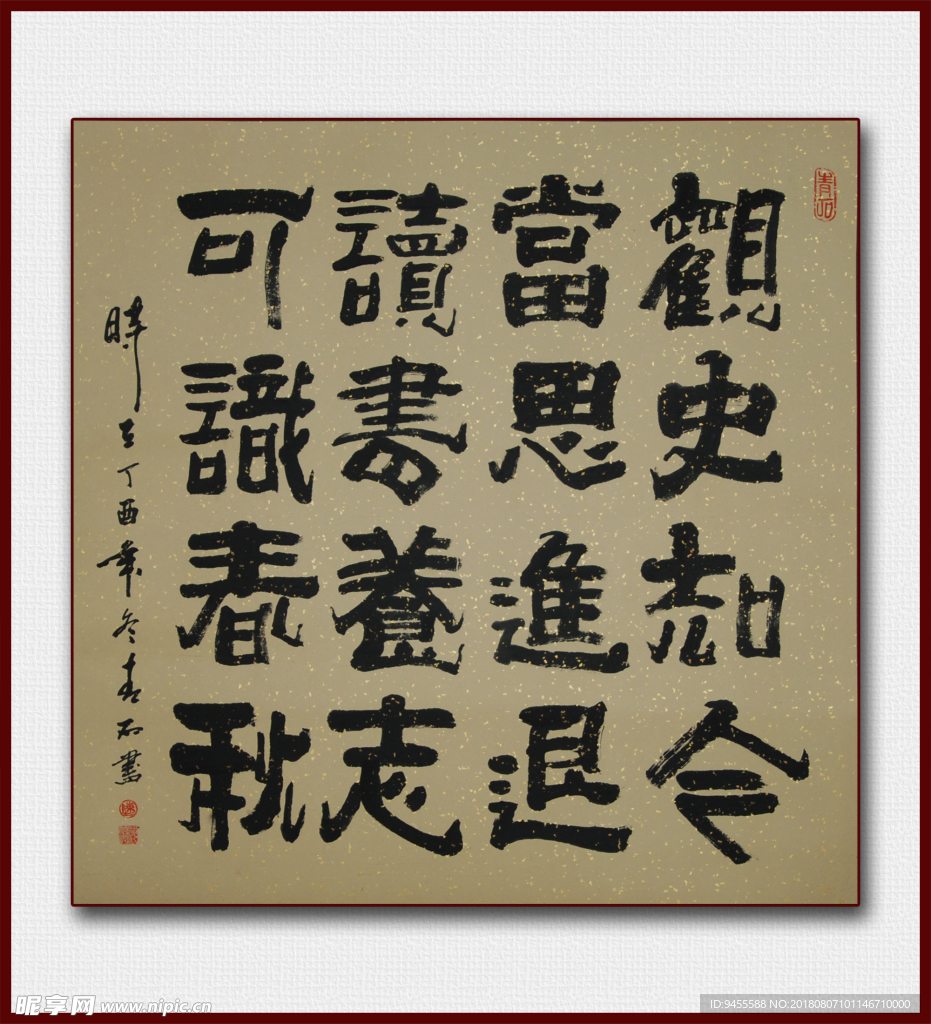 青石
觀史知今
當思進退
讀書養志
可識春秋
時在丁酉年冬青石書
昵享网 www.nipic.cn
ID:9455588 NO:20180807101146710000